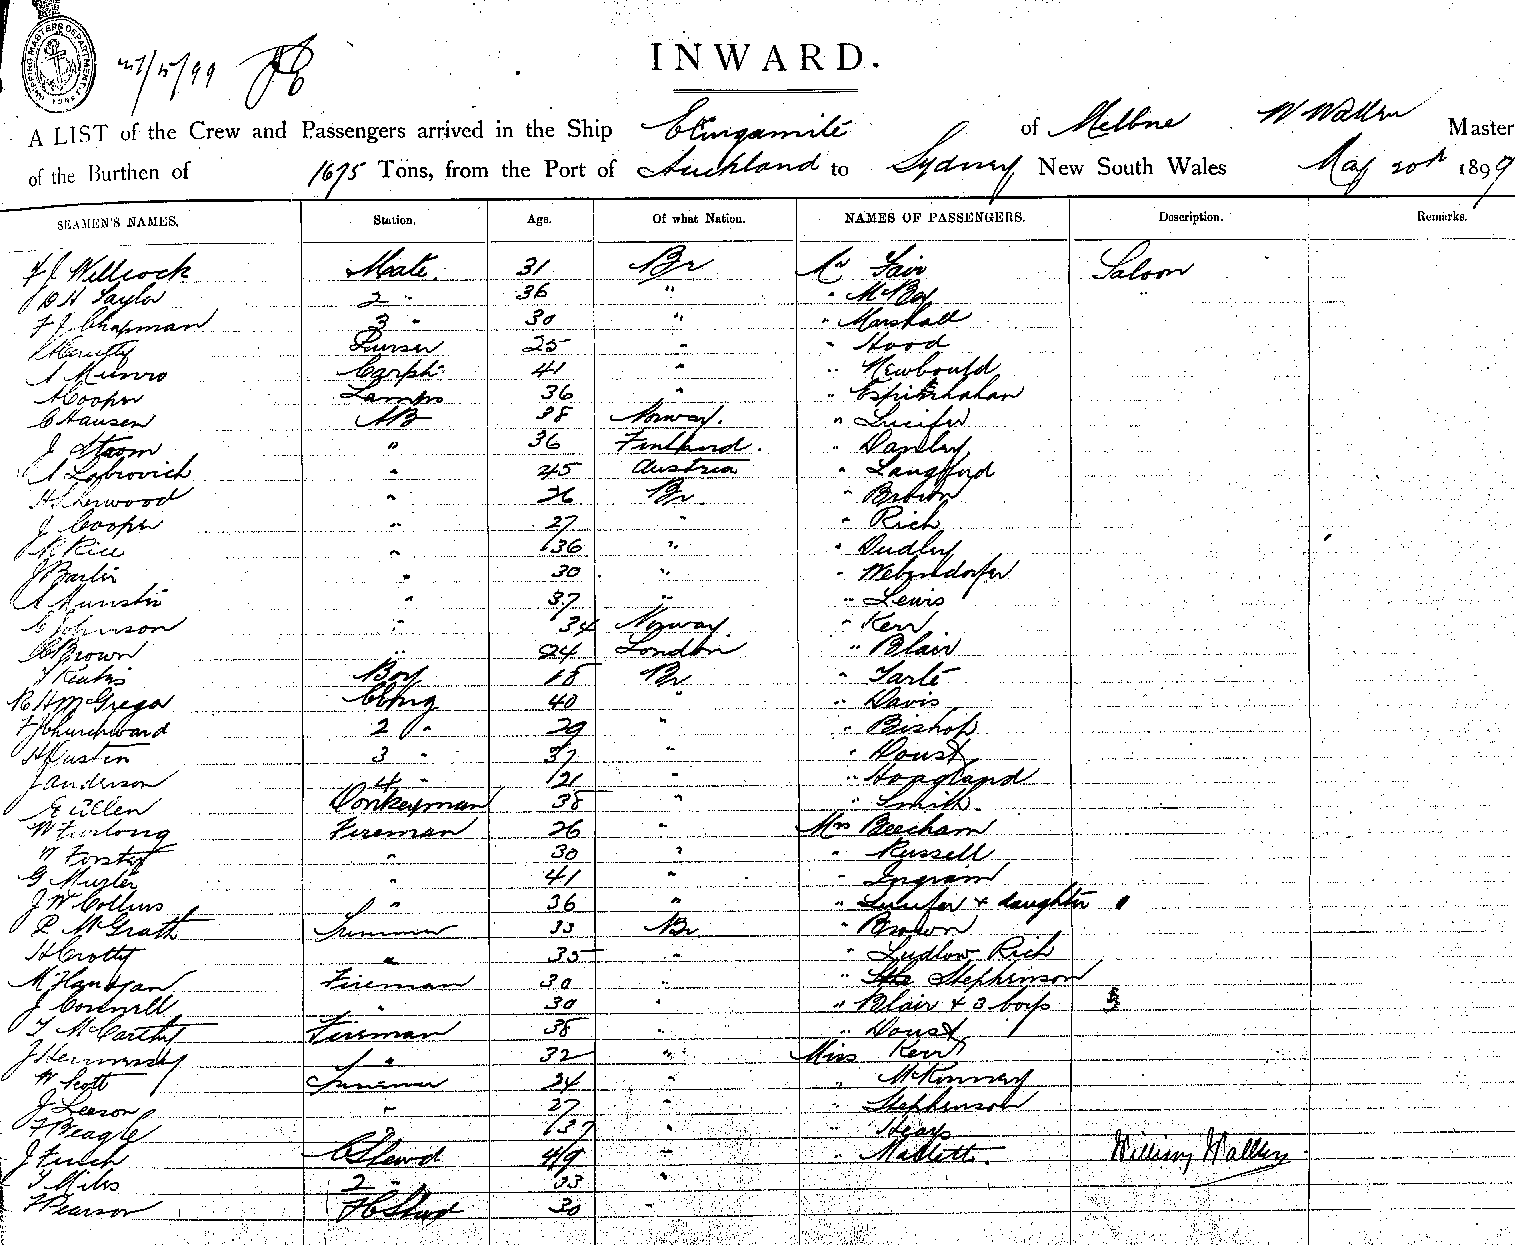 SHIPPING MASTERS DEPARTMENT
27/5/99
INWARD.
A LIST of the Crew and Passengers arrived in the Ship Elingamite of Melbne W Waller Master
of the Burthen of 1675 Tons, from the Port of Auckland to Sydney New South Wales May 20th 1899
SEAMEN'S NAMES. Station. Age. Of what Nation. NAMES OF PASSENGERS. Description. Remarks.
F J Willcock Mate. 31 Br Mr Fair Saloon
H Taylor 2 " 36 " " McBa
F J Chapman 3 " 30 " " Marshall
Purser 25 " " Hood
A Munro Carptr 41 " " Newbould
A Cooper Lamps 36 "
C Hansen AB 38 Norway. " Lucifer
J Strom " 36 Finland. " Danley
A Labrovich " 45 Austria " Langford
H Sherwood " 26 Br. " Brown
J Cooper " 27 " " Rich
R Rice " 36 " " Dudley
J Bartir " 30 " " Webendorfer
A Munstir " 37 " " Lewis
C Johnson " 34 Norway. " Kerr
Brown " 24 London " Blair
T Keatis Boy 18 Br " Tarte
R H McGregor C Eng 40 " " Davis
F J Churchward 2 " 29 " " Bishop
H Austin 3 " 37 " " Doust
J Anderson 4 " 21 " " Hoagland
E Allen Donkeyman 38 " " Smith.
W Furlong Fireman 26 " Mrs Beecham
Forster " 30 " " Russell
G Murler " 41 " " Ingram
J W Collins " 36 " " Lucifer & daughter
P McGrath Trimmer 33 Br " Brown
H Crotty " 35 " " Ludlow Rich
M Flanagan Fireman 30 " " Stephenson
J Connell " 30 " " Blair & 3 boys
T McCarthy Fireman 38 " " Doust
J Hennessy " 32 " Miss Kerr
W Scott Trimmer 24 " " McKinney
J Leeson " 27 " " Stephenson
F Beagle " 37 " " Heays
J Finch C Stewd 49 " " Mallett. William Waller
T Miles 2 " 33 "
F Pearson 30 "